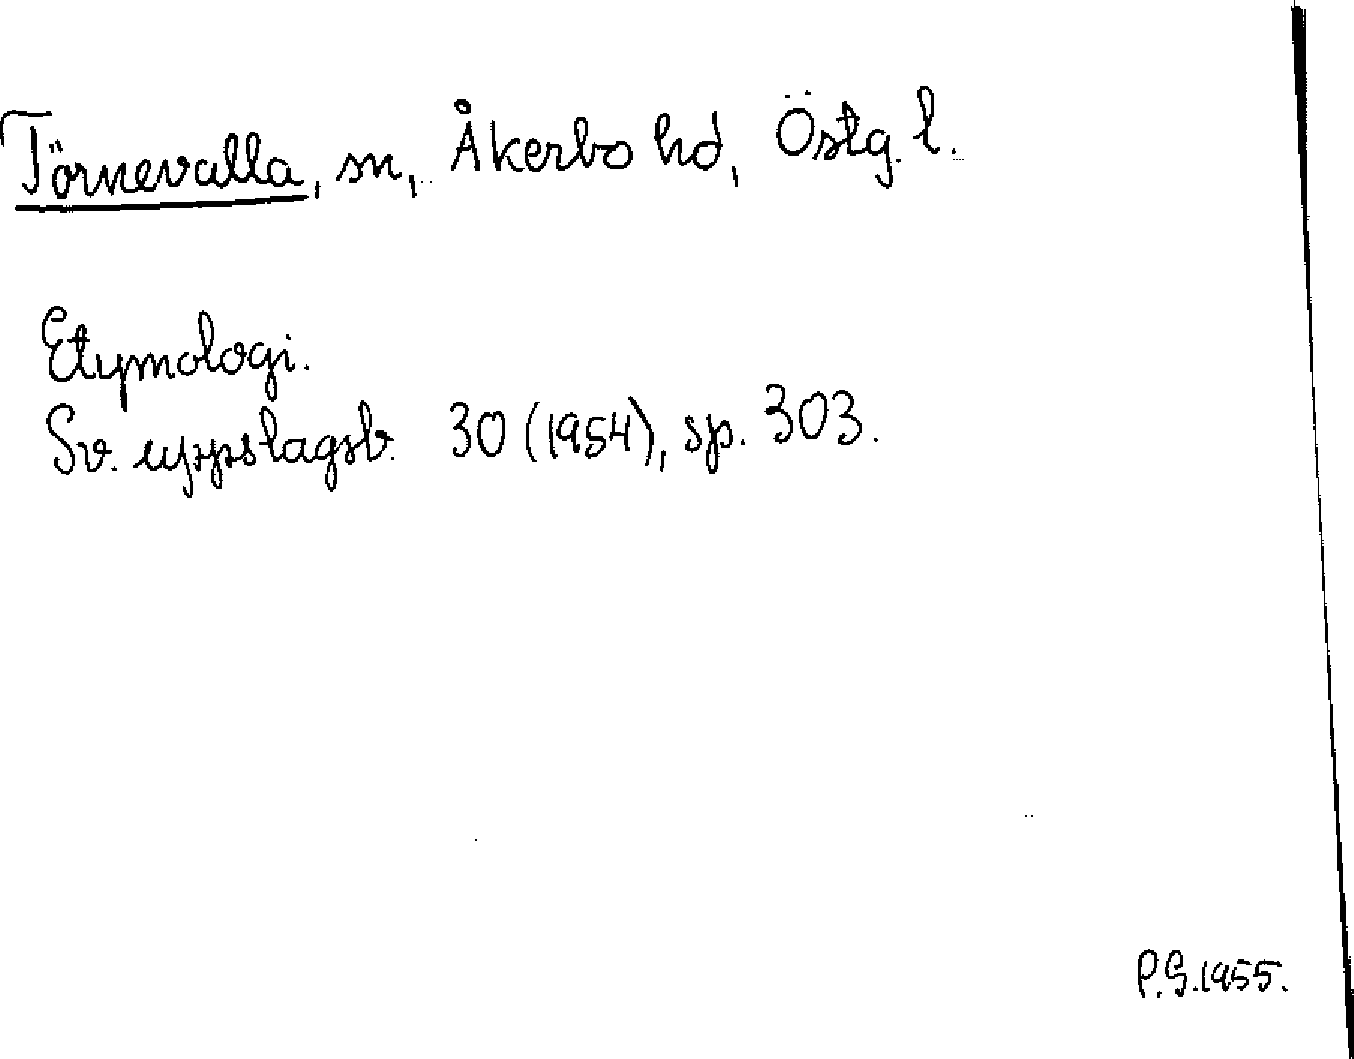 Törnevalla, sn, Åkerbo hd, Östg. l.
Etymologi.
Sv. uppslagsb. 30 (1954), sp. 303.
P.G. 1955.